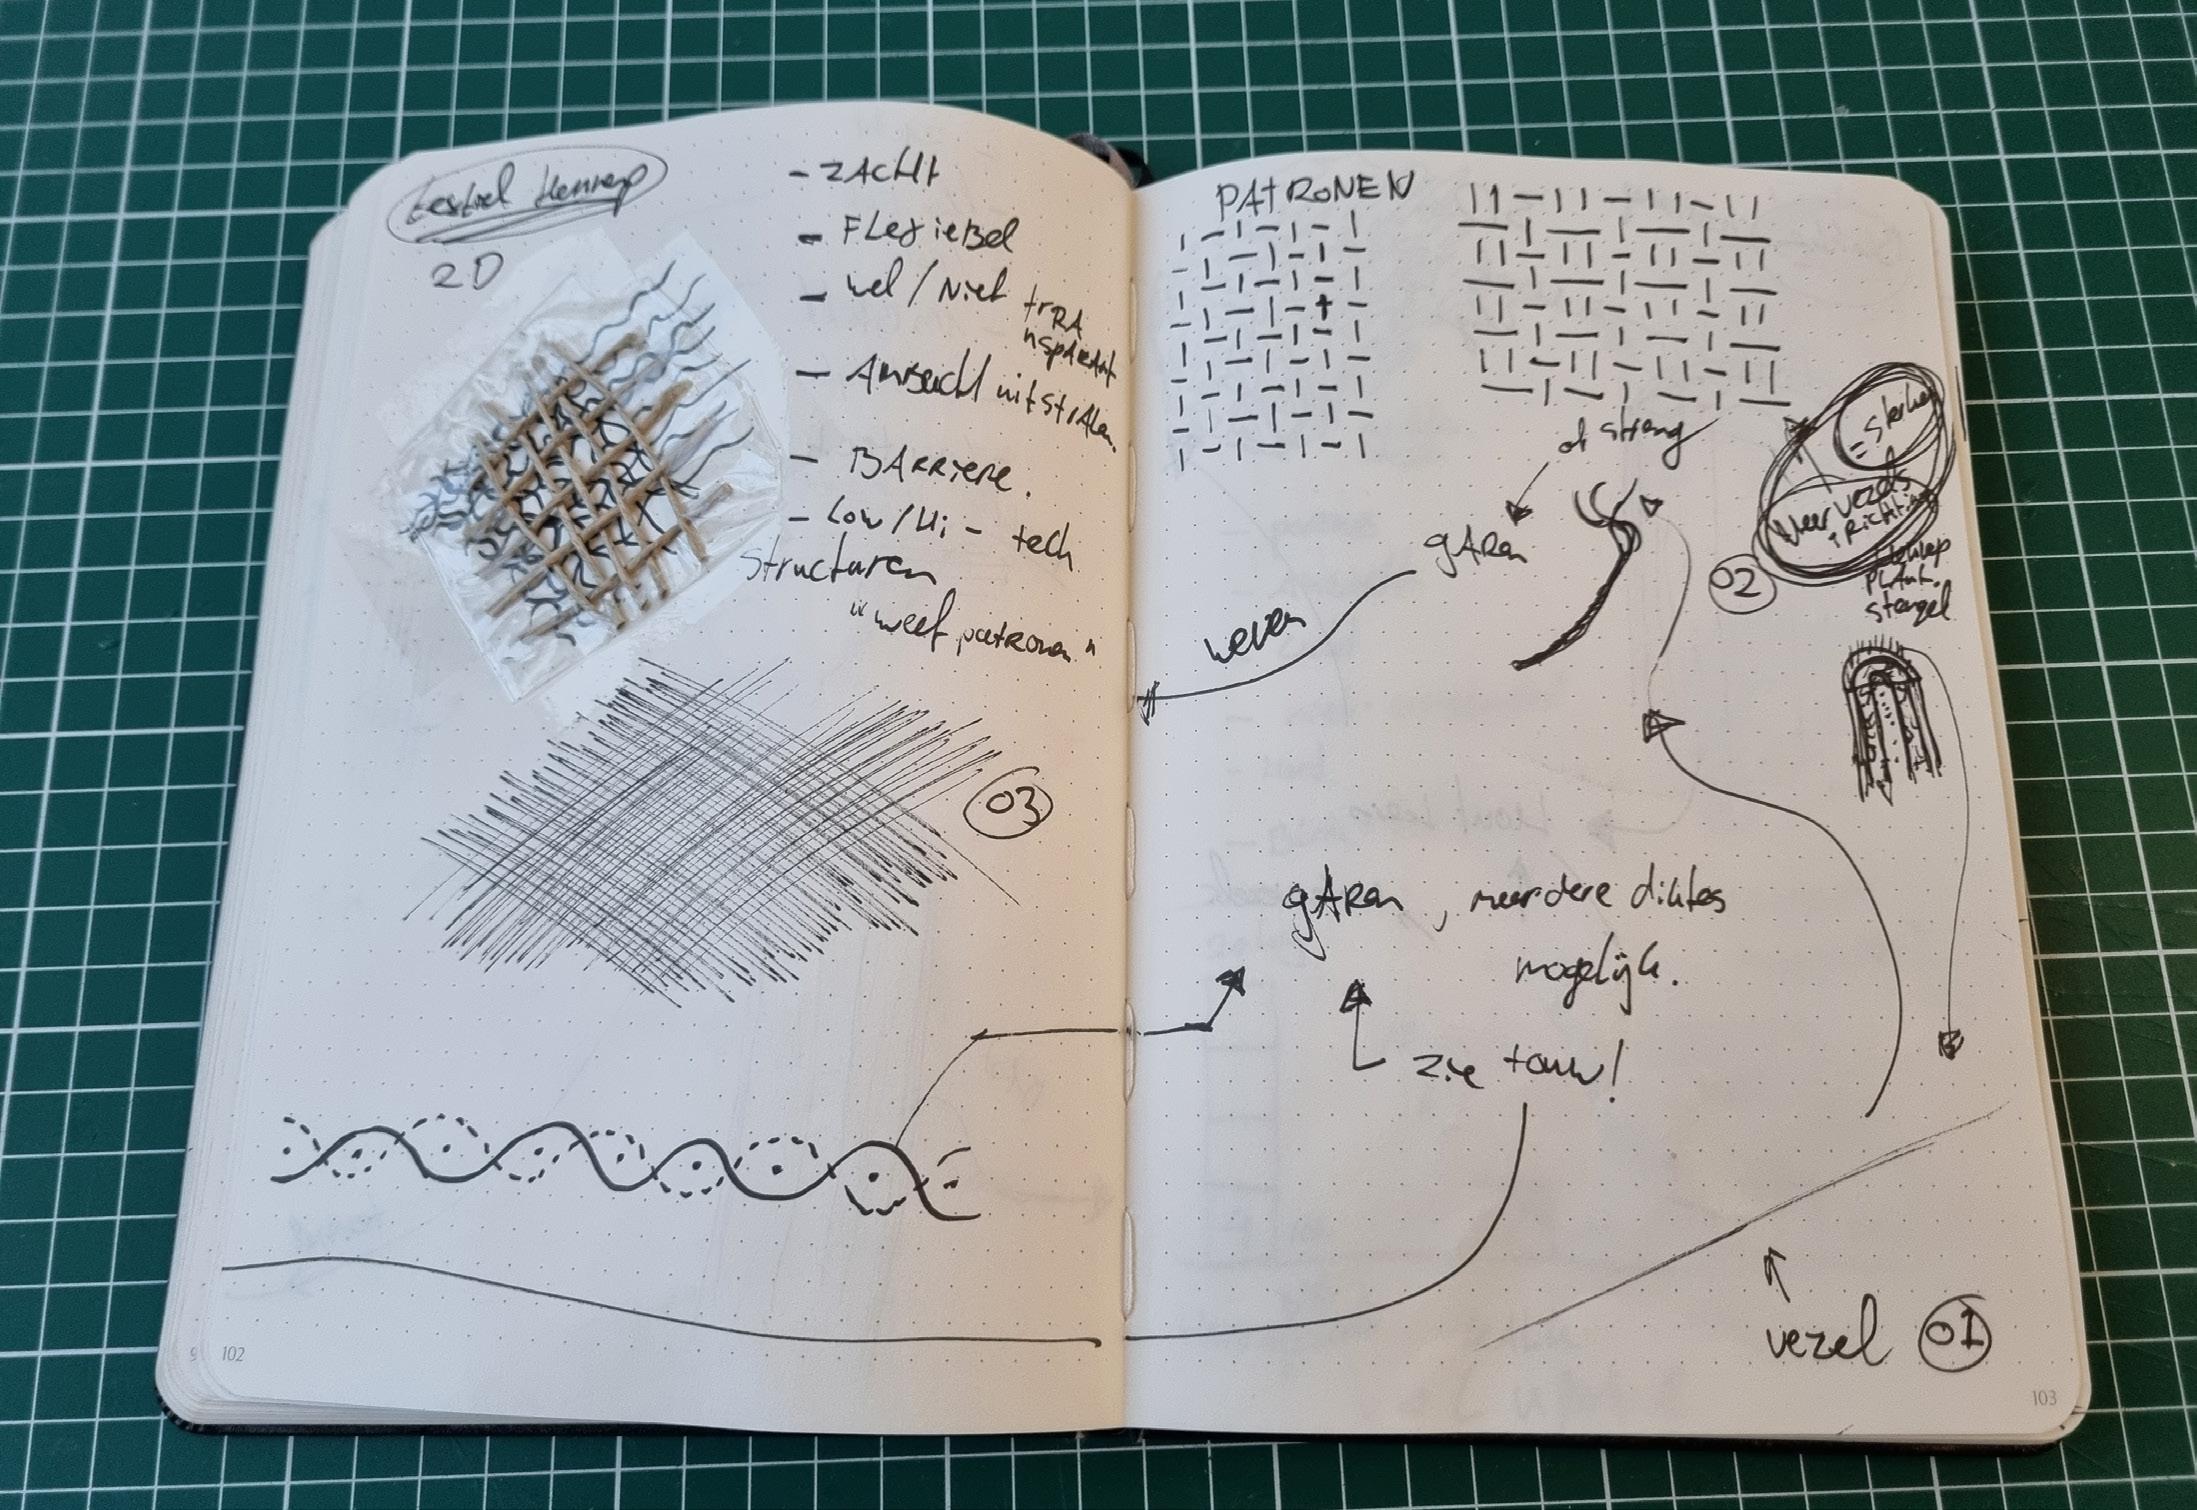 textiel Hennep
2D
- ZACHt
- FLexieBel
- wel / Niet trRA
nsPARAnt
- AmBacht uitstrAlen.
- BARRiere.
- Low / Hi - tech
structuren
"weef patronen"
03
9 102
PATRONEN
of streng
gARen
weven
= sterker
Meer vezels
1 Richting
02
Hennep
PLAnt.
stengel
gARen, meerdere diktes
mogelijk.
zie touw!
vezel 01
103